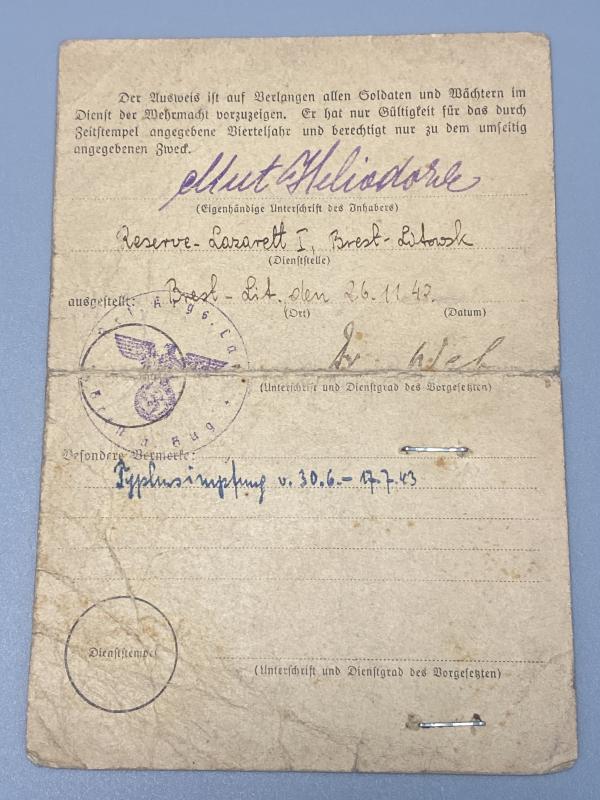 Der Ausweis ist auf Verlangen allen Soldaten und Wächtern im
Dienst der Wehrmacht vorzuzeigen. Er hat nur Gültigkeit für das durch
Zeitstempel angegebene Vierteljahr und berechtigt nur zu dem umseitig
angegebenen Zweck.
(Eigenhändige Unterschrift des Inhabers)
Reserve-Lazarett I, Brest-Litowsk
(Dienststelle)
ausgestellt: Brest-Lit. den 26.11.42.
(Ort) (Datum)
Dr.
(Unterschrift und Dienstgrad des Vorgesetzten)
Besondere Vermerke:
Typhusimpfung v. 30.6.- 17.7.43
Dienststempel
(Unterschrift und Dienstgrad des Vorgesetzten)